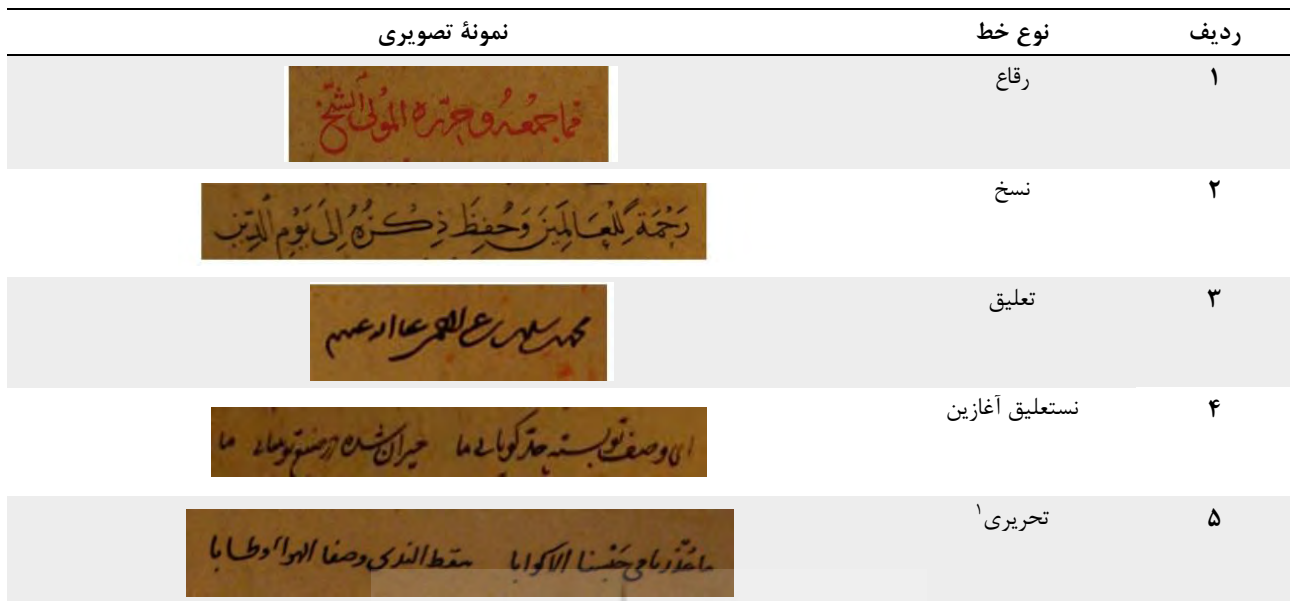 ردیف نوع خط نمونهٔ تصویری
۱ رقاع فما جمعه و حرّره المولى الشیخ
۲ نسخ رَحْمَةً لِلْعَالَمِينَ وَحُفِظَ ذِكْرُهُ إِلَى يَوْمِ الدِّينِ
۳ تعلیق
۴ نستعلیق آغازین ای وصف تو بسته حد گویایی ما حیران شده در صنع تو ما
۵ تحریری۱ الاکوابا سقط الندی وصفا الهوا وطابا